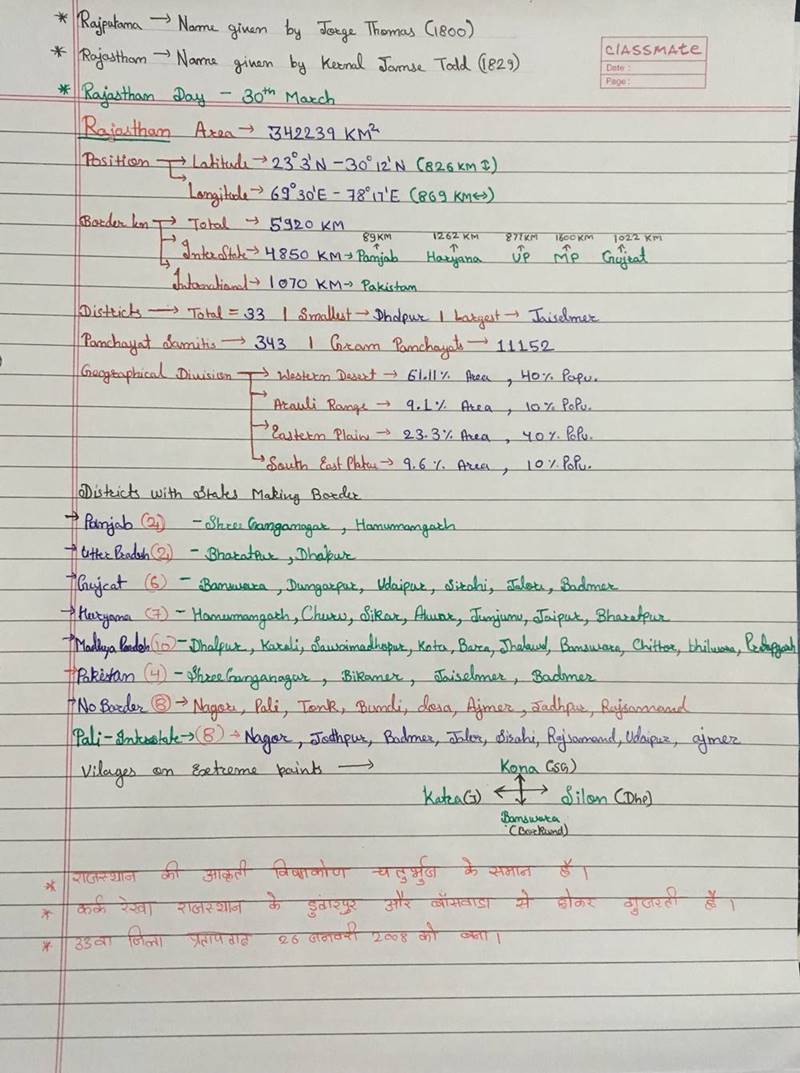 * Rajputana → Name given by Jorge Thomas (1800)
* Rajasthan → Name given by Kernal Jamse Todd (1829)
CLASSMATE
Date :
Page :
* Rajasthan Day – 30th March
Rajasthan Area → 342239 KM²
Position → Latitude → 23°3'N – 30°12'N (826 KM ↕)
Longitude → 69°30'E – 78°17'E (869 KM ↔)
Border km → Total → 5920 KM
89KM 1262 KM 877KM 1600KM 1022 KM
InterState → 4850 KM → Panjab Haryana UP MP Gujrat
International → 1070 KM → Pakistan
Districts → Total = 33 | Smallest → Dholpur | Largest → Jaiselmer
Panchayat Samitis → 343 | Gram Panchayats → 11152
Geographical Division → Western Desert → 61.11% Area , 40% Popu.
Aravli Range → 9.1% Area , 10% Popu.
Eastern Plain → 23.3% Area , 40% Popu.
South East Platau → 9.6% Area , 10% Popu.
Districts with States Making Border
→ Panjab (2) – Shree Ganganagar , Hanumangarh
→ Utter Pradesh (2) – Bharatpur , Dholpur
→ Gujrat (6) – Banswara , Dungarpur, Udaipur, Sirohi , Jalore , Badmer
→ Haryana (7) – Hanumangarh, Churu, Sikar, Alwar, Junjunu, Jaipur, Bharatpur
→ Madhya Pradesh (10) – Dholpur, Karoli, Sawaimadhopur, Kota, Bara, Jhalawad, Banswara, Chittor, bhilwara, Pratapgarh
→ Pakistan (4) – Shree Ganganagar , Bikaner , Jaiselmer , Badmer
→ No Border (8) → Nagor, Pali, Tonk, Bundi, dosa, Ajmer , Jodhpur, Rajsamand
Pali – Interstate → (8) → Nagor , Jodhpur, Badmer, Jalor, Sirohi , Rajsamand, Udaipur, ajmer
Villages on Extreme points →
Kona (SG)
Katra (J) Silon (Dhp)
Banswara
(Borkund)
* राजस्थान की आकृती विषमकोण चतुर्भुज के समान है ।
* कर्क रेखा राजस्थान के डुंगरपुर और बाँसवाडा से होकर गुजरती है ।
* 33वा जिला प्रतापगढ 26 जनवरी 2008 को बना ।